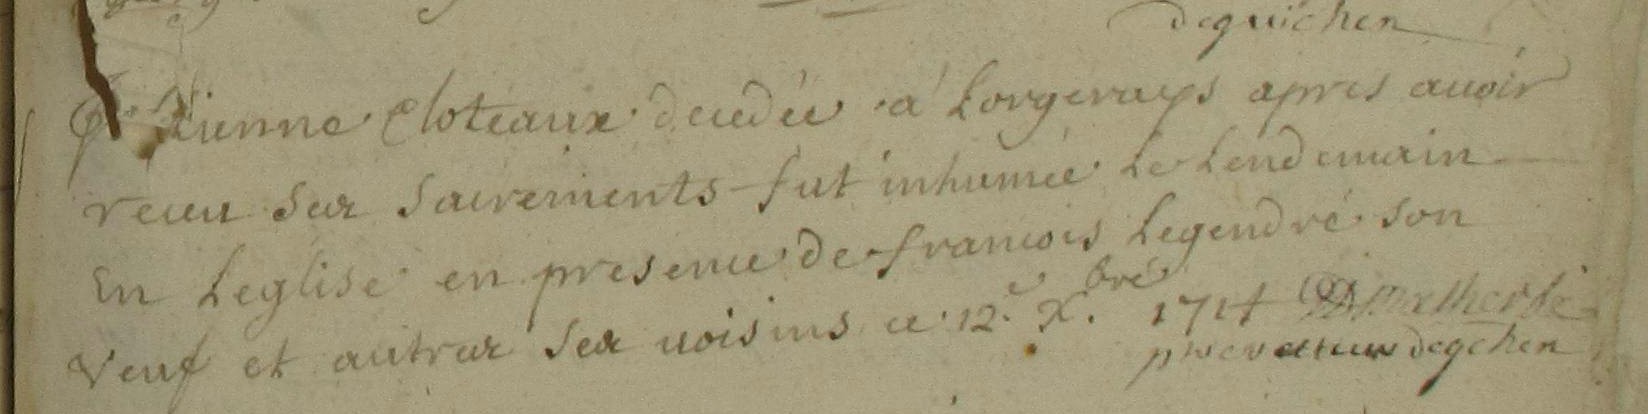 deguichen
Etienne Cloteaux decedée a Lorgerays apres auoir
receu ses sacrements fut inhumée le lendemain
en leglise en presence de francois Legendre son
veuf et autres ses uoisins ce 12.e X.bre 1714 Malherbe
degchen